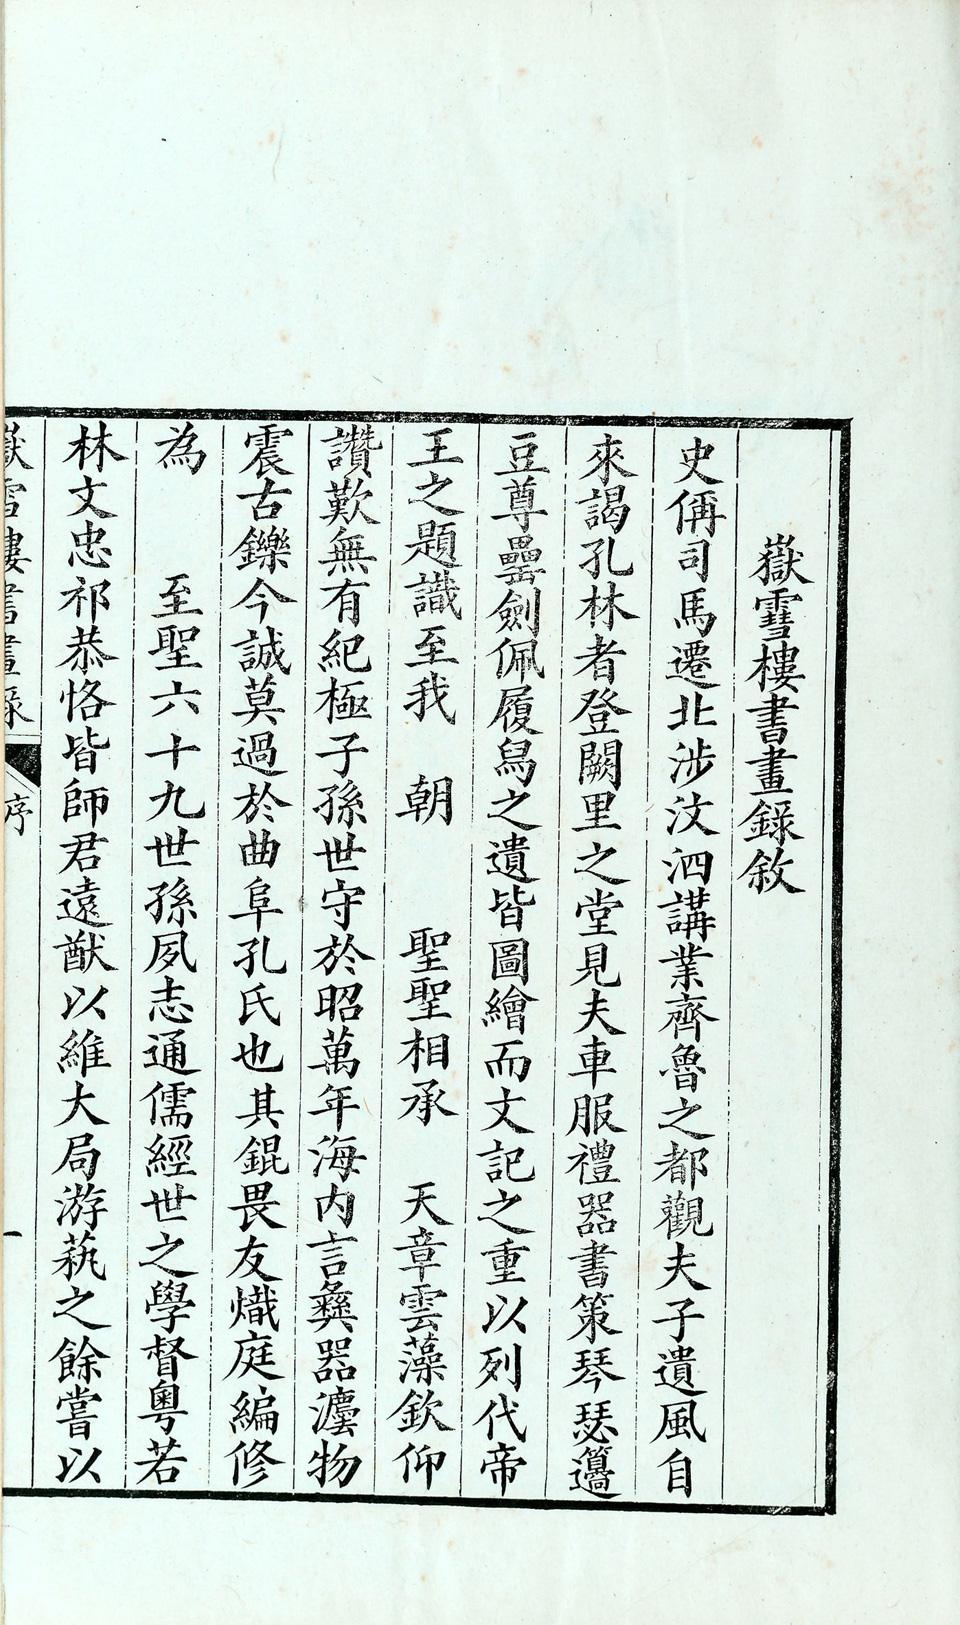 嶽雪樓書畫錄敘
史偁司馬遷北涉汶泗講業齊魯之都觀夫子遺風自
來謁孔林者登闕里之堂見夫車服禮器書策琴瑟籩
豆尊罍劍佩履舃之遺皆圖繪而文記之重以列代帝
王之題識至我 朝 聖聖相承 天章雲藻欽仰
讚歎無有紀極子孫世守於昭萬年海內言彝器灋物
震古鑠今誠莫過於曲阜孔氏也其錕畏友熾庭編修
為 至聖六十九世孫夙志通儒經世之學督粵若
林文忠祁恭恪皆師君遠猷以維大局游蓺之餘嘗以
嶽雪樓書畫錄 序 一